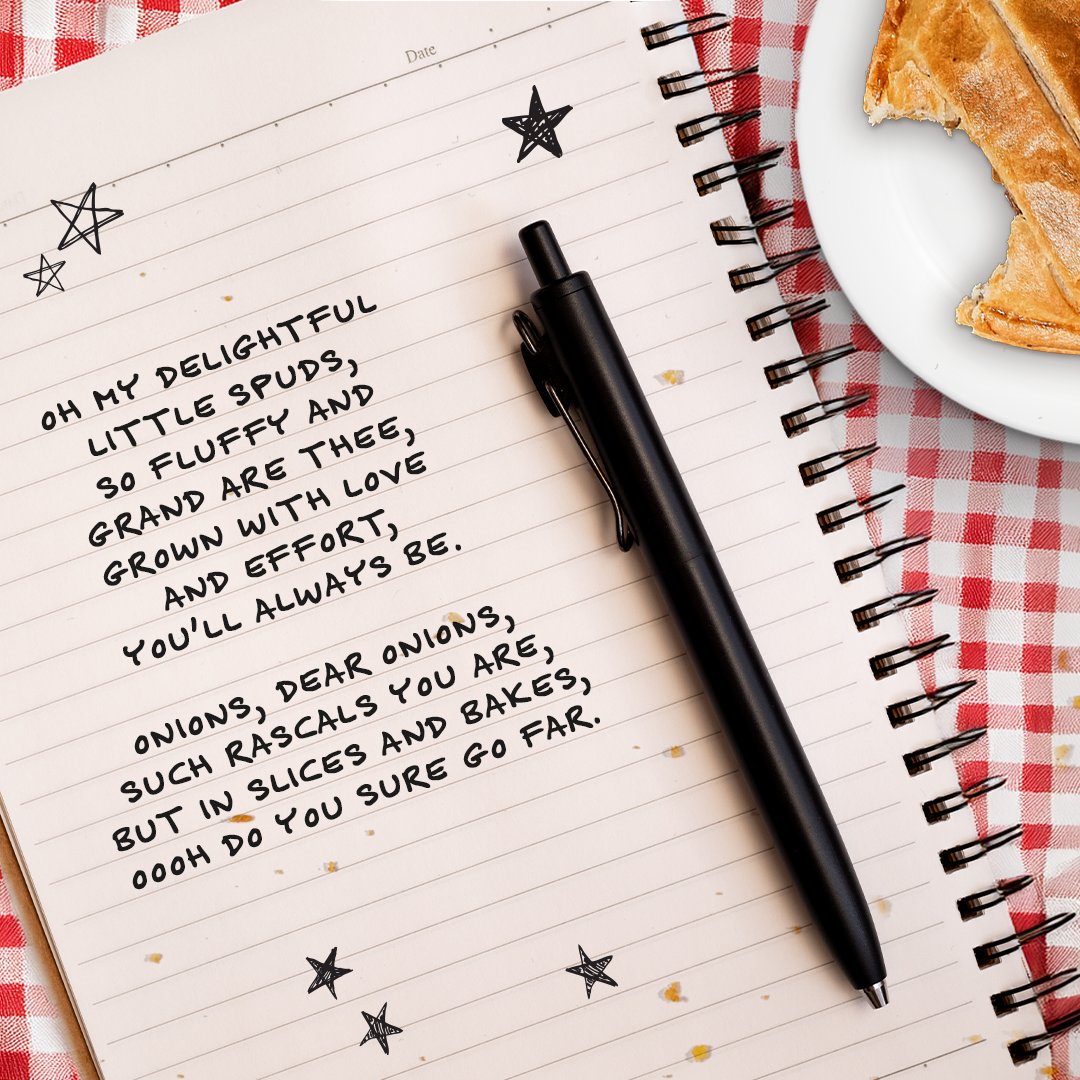 Date
OH MY DELIGHTFUL
LITTLE SPUDS,
SO FLUFFY AND
GRAND ARE THEE,
GROWN WITH LOVE
AND EFFORT,
YOU'LL ALWAYS BE.
ONIONS, DEAR ONIONS,
SUCH RASCALS YOU ARE,
BUT IN SLICES AND BAKES,
OOOH DO YOU SURE GO FAR.